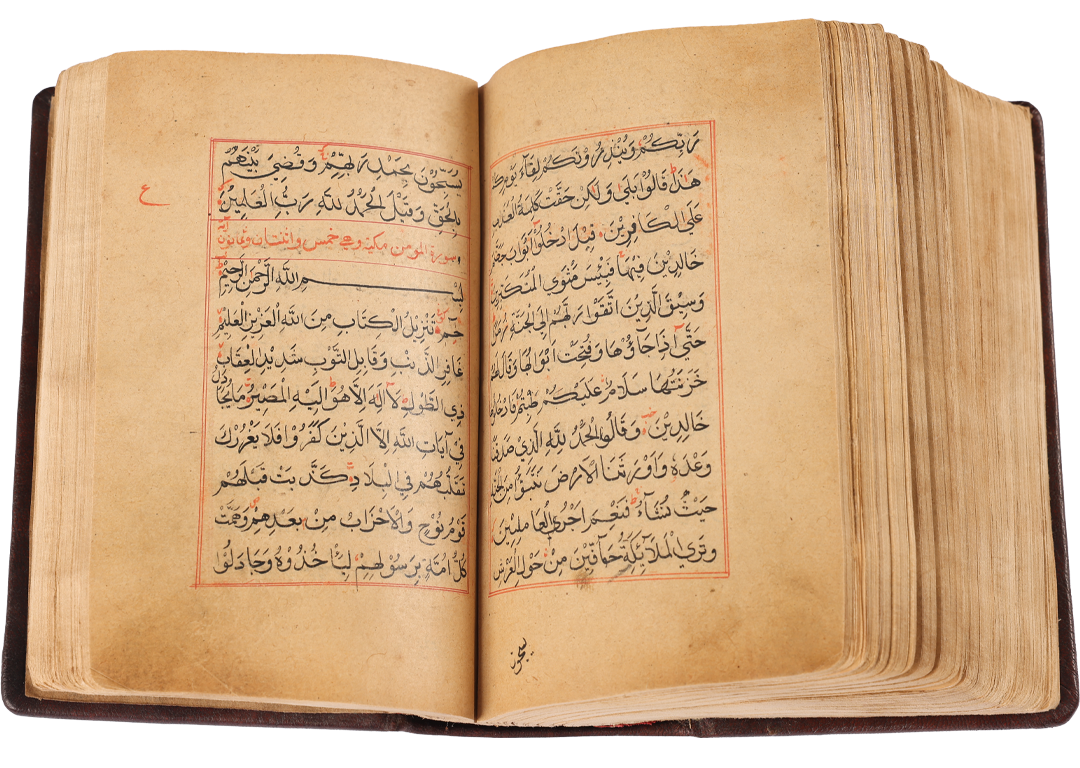 رَبِّكُمْ وَيُنْذِرُونَكُمْ لِقَاءَ يَوْمِكُ
هَذَا قَالُوا بَلَى وَلَكِنْ حَقَّتْ كَلِمَةُ الْعَذَابِ
عَلَى الْكَافِرِينَ قِيلَ ادْخُلُوا اَبْوَابَ جَهَنَّمَ
خَالِدِينَ فِيهَا فَبِئْسَ مَثْوَى الْمُتَكَبِّرِينَ
وَسِيقَ الَّذِينَ اتَّقَوْا رَبَّهُمْ اِلَى الْجَنَّةِ زُمَرًا
حَتَّى اِذَا جَاؤُهَا وَفُتِحَتْ اَبْوَابُهَا وَقَالَ لَهُمْ
خَزَنَتُهَا سَلَامٌ عَلَيْكُمْ طِبْتُمْ فَادْخُلُوهَا
خَالِدِينَ وَقَالُوا الْحَمْدُ لِلَّهِ الَّذِي صَدَقَنَا
وَعْدَهُ وَاَوْرَثَنَا الْاَرْضَ نَتَبَوَّاُ مِنَ الْجَنَّةِ
حَيْثُ نَشَاءُ فَنِعْمَ اَجْرُ الْعَامِلِينَ
وَتَرَى الْمَلَائِكَةَ حَافِّينَ مِنْ حَوْلِ الْعَرْشِ
يسبحون
يُسَبِّحُونَ بِحَمْدِ رَبِّهِمْ وَقُضِيَ بَيْنَهُمْ
بِالْحَقِّ وَقِيلَ الْحَمْدُ لِلَّهِ رَبِّ الْعَالَمِينَ
ع
سورة المومن مكية وهي خمس واثنتان وثمانون آية
بِسْمِ اللَّهِ الرَّحْمَنِ الرَّحِيمِ
حم تَنْزِيلُ الْكِتَابِ مِنَ اللَّهِ الْعَزِيزِ الْعَلِيمِ
غَافِرِ الذَّنْبِ وَقَابِلِ التَّوْبِ شَدِيدِ الْعِقَابِ
ذِي الطَّوْلِ لَا اِلَهَ اِلَّا هُوَ اِلَيْهِ الْمَصِيرُ مَا يُجَادِلُ
فِي آيَاتِ اللَّهِ اِلَّا الَّذِينَ كَفَرُوا فَلَا يَغْرُرْكَ
تَقَلُّبُهُمْ فِي الْبِلَادِ كَذَّبَتْ قَبْلَهُمْ
قَوْمُ نُوحٍ وَالْاَحْزَابُ مِنْ بَعْدِهِمْ وَهَمَّتْ
كُلُّ اُمَّةٍ بِرَسُولِهِمْ لِيَاْخُذُوهُ وَجَادَلُوا